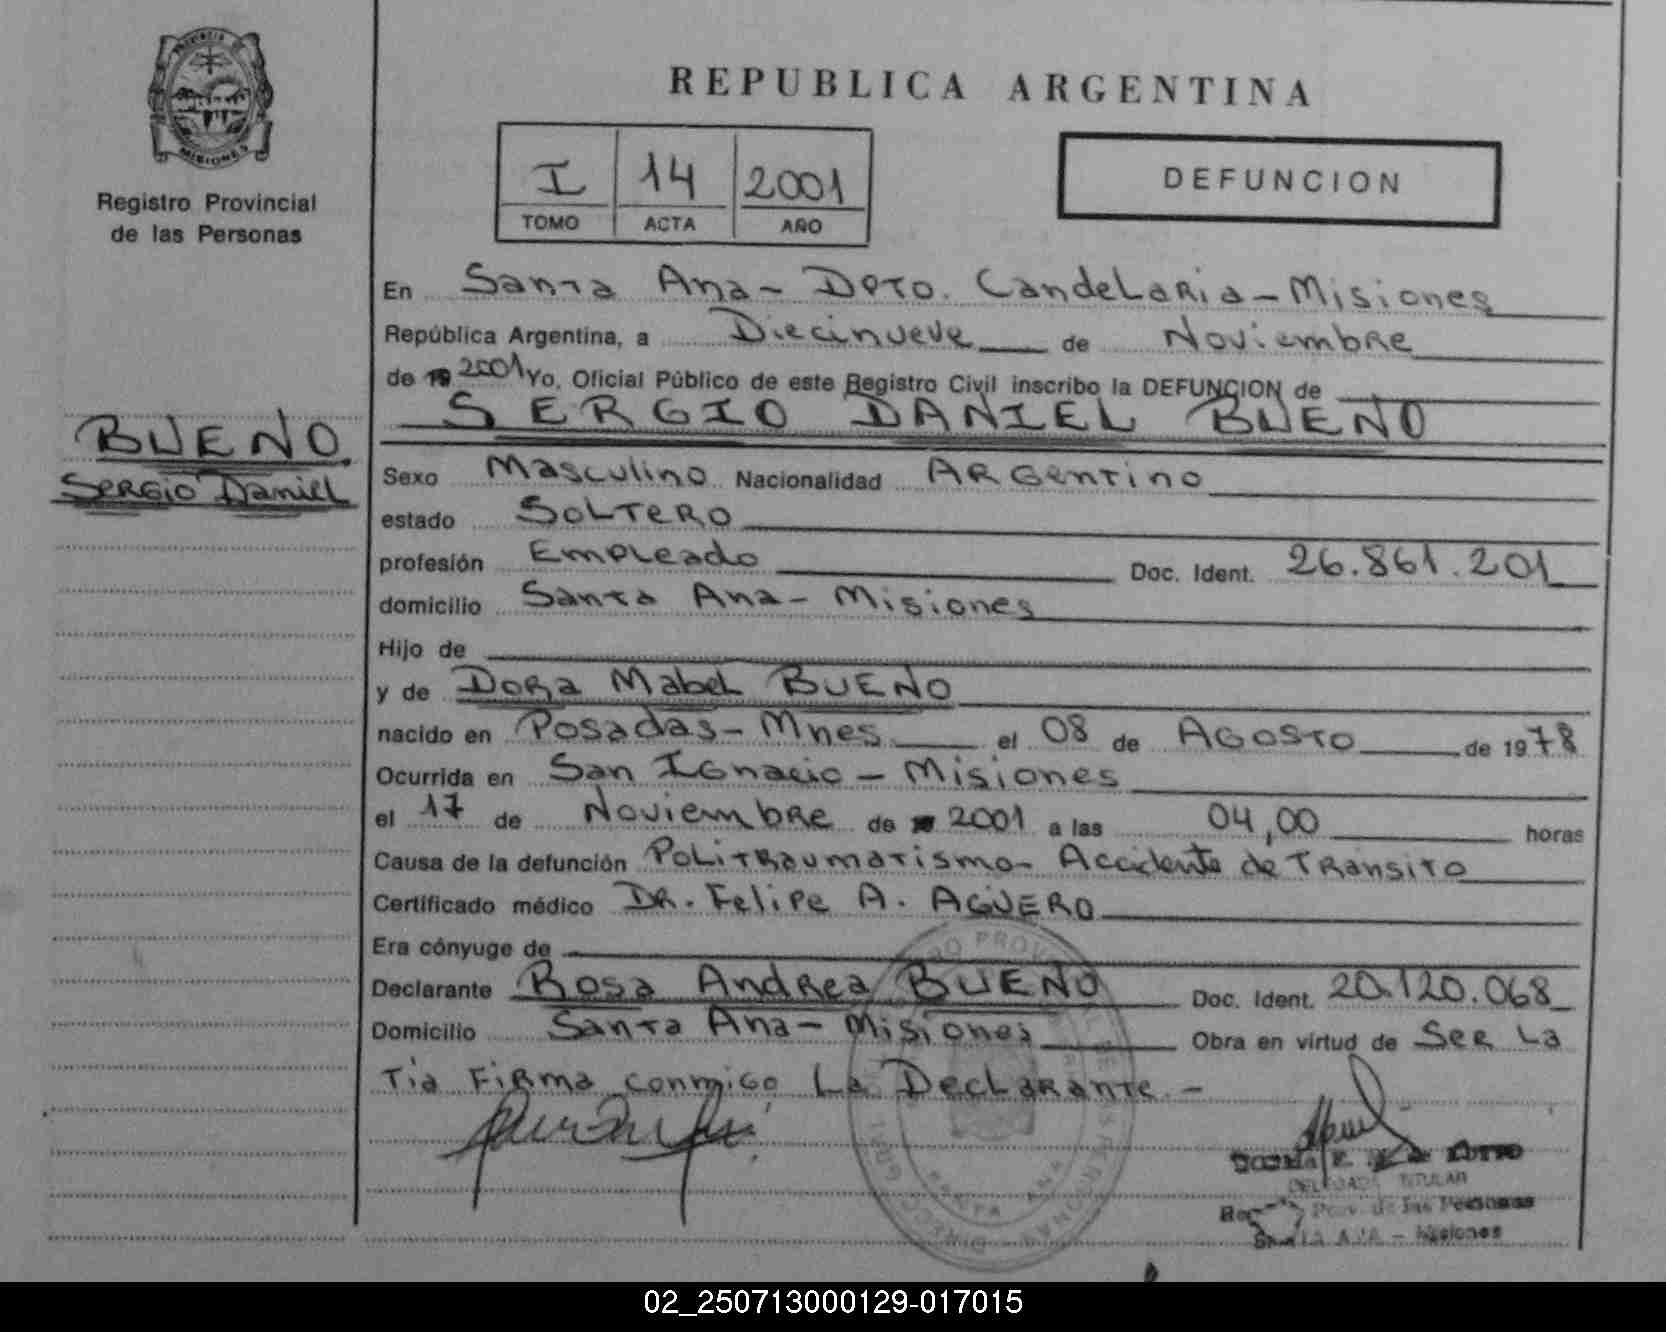 PROVINCIA DE
MISIONES
Registro Provincial
de las Personas
BUENO.
Sergio Daniel
REPUBLICA ARGENTINA
I 14 2001
TOMO ACTA AÑO
DEFUNCION
En Santa Ana - Dpto. Candelaria - Misiones
República Argentina, a Diecinueve de Noviembre
de 19 2001 Yo, Oficial Público de este Registro Civil inscribo la DEFUNCION de
SERGIO DANIEL BUENO
Sexo Masculino Nacionalidad Argentino
estado Soltero
profesión Empleado Doc. Ident. 26.861.201
domicilio Santa Ana - Misiones
Hijo de
y de Dora Mabel BUENO
nacido en Posadas - Mnes el 08 de Agosto de 1978
Ocurrida en San Ignacio - Misiones
el 17 de Noviembre de 2001 a las 04,00 horas
Causa de la defunción Politraumatismo - Accidente de Transito
Certificado médico Dr. Felipe A. AGÜERO
Era cónyuge de
Declarante Rosa Andrea BUENO Doc. Ident. 20.120.068
Domicilio Santa Ana - Misiones Obra en virtud de Ser La
Tia Firma conmigo La Declarante. -
SANTA ANA
DELEGADA TITULAR
Prov. de las Personas
SANTA ANA - Misiones
02_250713000129-017015